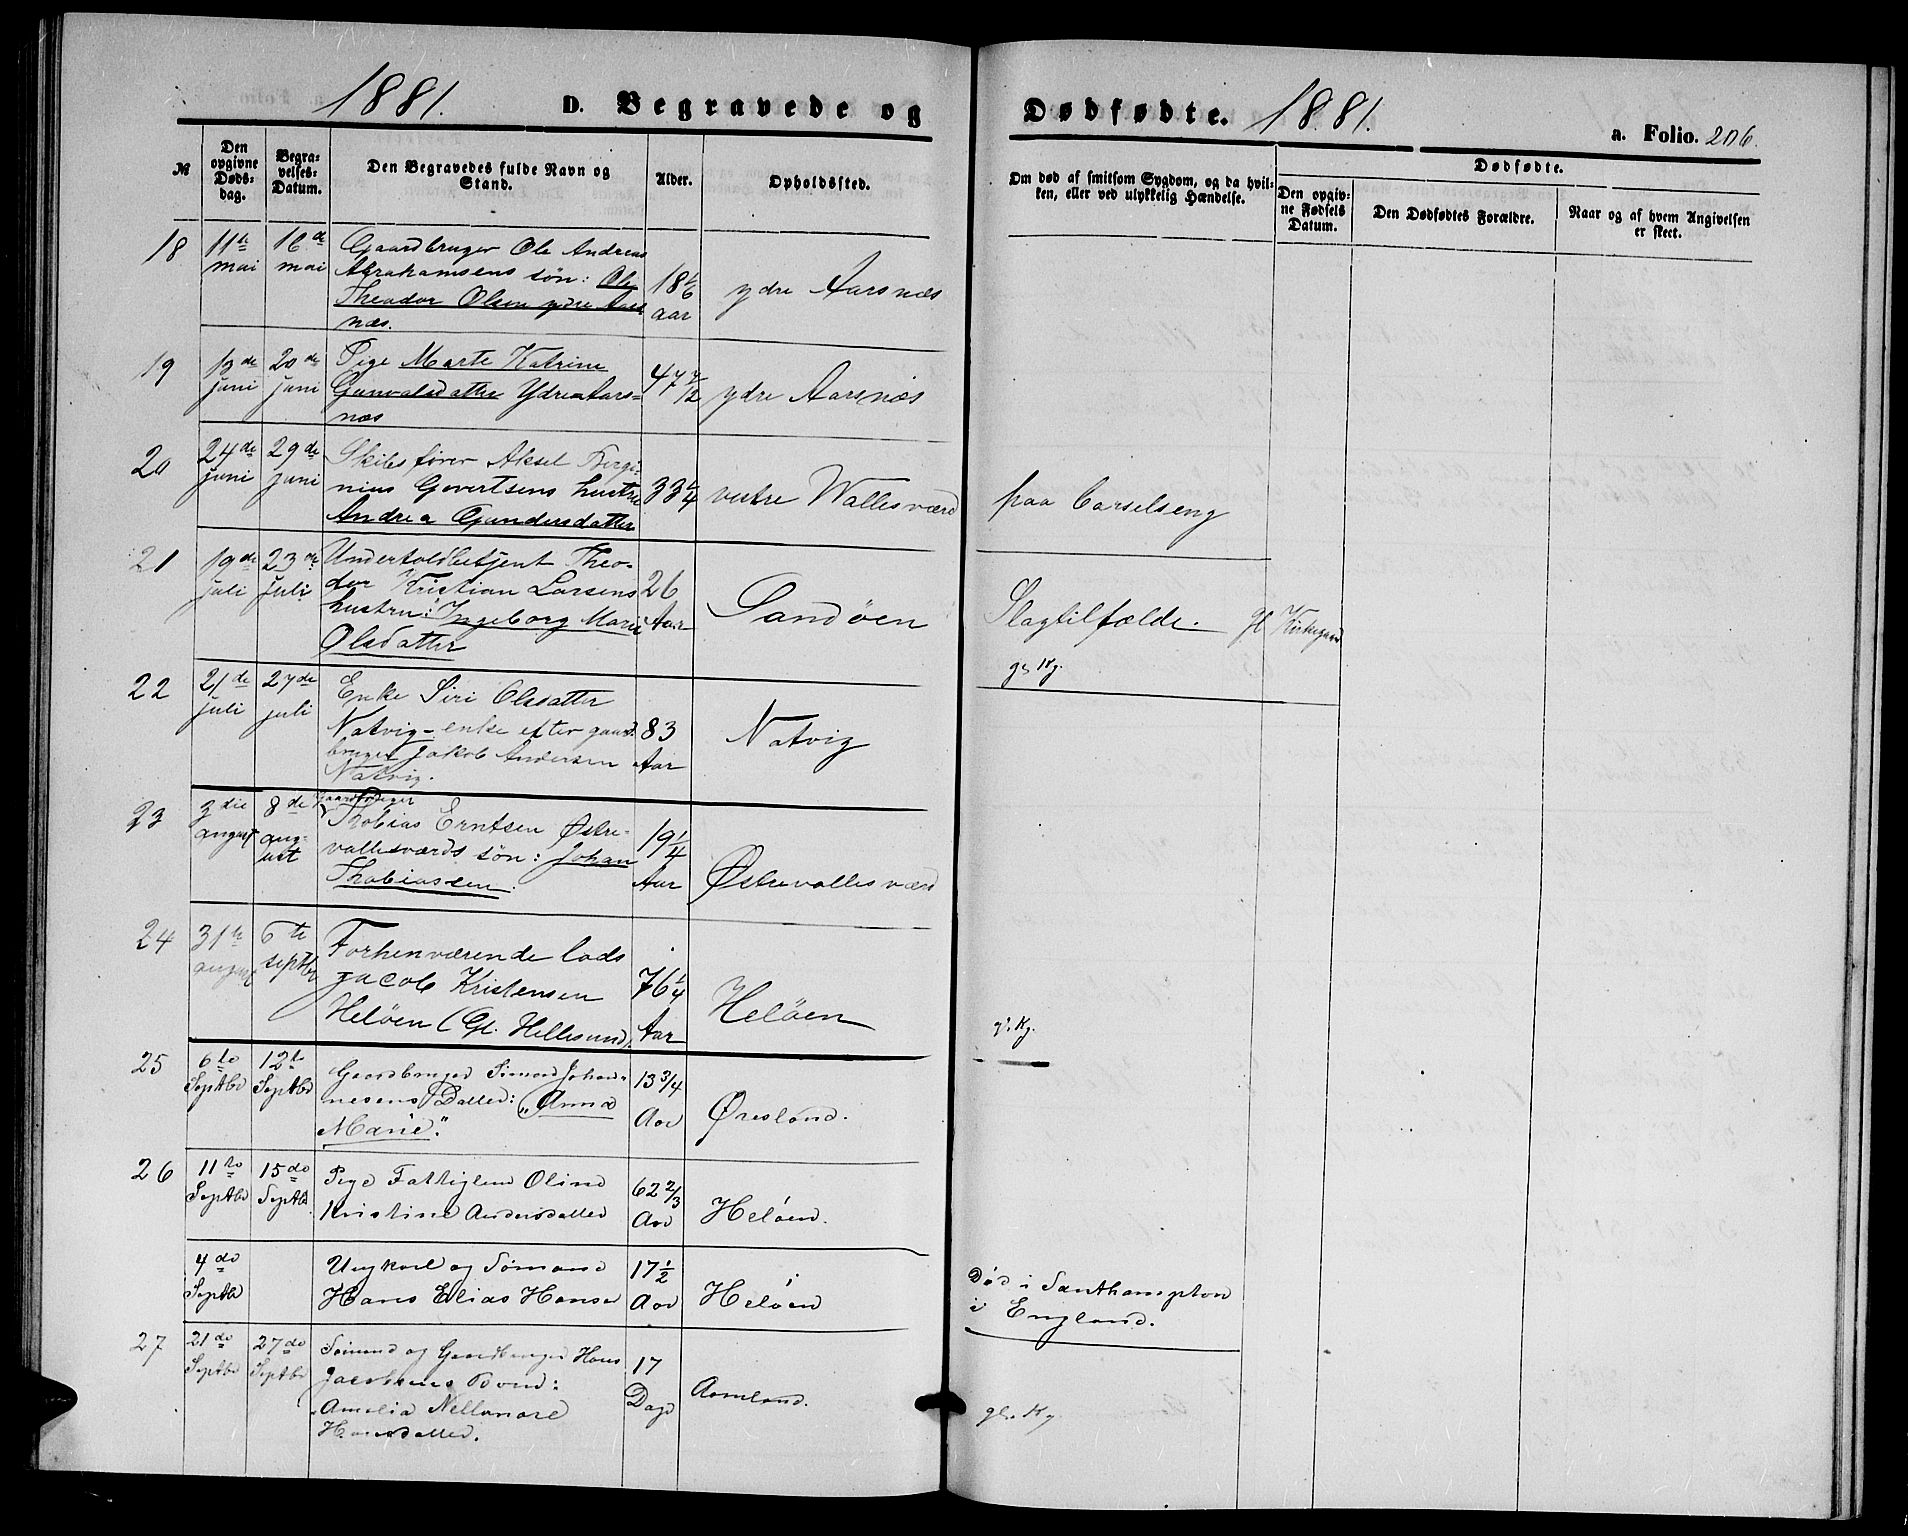 1881.
D. Begravede og
Dødfødte.
1881.
a. Folio. 206.
№
Den opgivne Døds-dag.
Begra-velses-Datum.
Den Begravedes fulde Navn og Stand.
Alder.
Opholdssted.
Om død af smitsom Sygdom, og da hvil-
ken, eller ved ulykkelig Hændelse.
Dødfødte.
Den opgiv-ne Fødsels Datum.
Den Dødfødtes Forældre.
Naar og af hvem Angivelsen er skeet.
18
11te mai
16de mai
Gaardbruger Ole Andreas
Abrahamsens søn: Ole
Theodor Olsen ydre Aars
næs.
18 1/6 aar
ydre Aarsnæs
19
13de juni
20de juni
Pige Marte Katrine
Gunvalsdatter Ydre Aars=
næs
47 7/12
ydre Aarsnæs
20
24de juni
29de juni
Skibsfører Aksel Bergi-
nius Govertsens hustru
Andrea Gundersdatter
33 1/4
vestre Wallesværd
paa barselseng
21
19de juli
23de juli
Undertoldbetjent Theo-
dor Kristian Larsens
hustru: Ingeborg Marie
Olsdatter
26 Aar
Sandöen
Slagtilfælde. gl Kirkegaard
gl. Kg.
22
21de juli
27de juli
Enke Siri Olsdatter
Natvig - enke efter gaard
bruger Jakob Andersen
Natvig.
83 Aar
Natvig
23
3die august
8de august
Gaardbruger
Thobias Erntsen Østre-
vallesværds søn: Johan
Thobiassen.
19 1/4 Aar
Østrevallesværd
24
31te august
6te septbr
Forhenværende lods
Jacob Kristensen
Helöen (Gl. Hellesund)
76 1/4 Aar
Helöen
gl. Kg.
25
6te Septbr
12te Septbr
Gaardbruger Simon Johan-
nesens Datter: "Anna
Marie".
13 3/4 Aar
Øresland.
26
11te Septbr
15de Septbr
Pige Fattiglem Oline
Kristine Andersdatter
62 2/3 Aar
Helöen.
4de Septbr
Ungkarl og Sömand
Hans Elias Hansen
17 1/2 Aar
Helöen
Död i Southampton
i England.
27
21de Septbr
27de Septbr
Sömand og Gaardbruger Hans
Jacobsens Barn:
Amalia
Hansdatter.
17 Dage
Aamland.
gl. Kg.